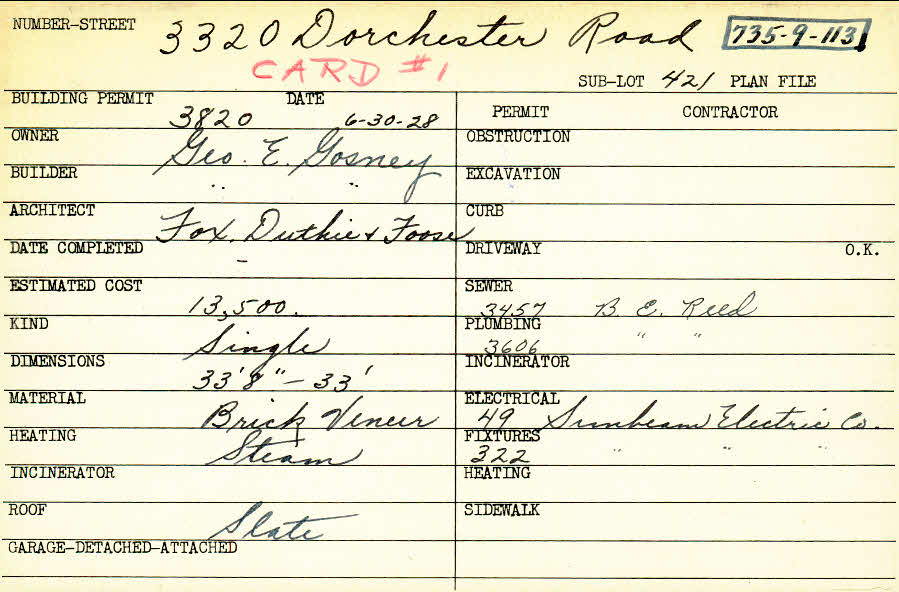 NUMBER-STREET 3320 Dorchester Road 735-9-113
CARD #1
SUB-LOT 421 PLAN FILE
BUILDING PERMIT DATE
3820 6-30-28
OWNER Geo. E. Gosney
BUILDER " "
ARCHITECT Fox, Duthie & Foose
DATE COMPLETED -
ESTIMATED COST 13,500.
KIND Single
DIMENSIONS 33'8" - 33'
MATERIAL Brick Veneer
HEATING Steam
INCINERATOR
ROOF Slate
GARAGE-DETACHED-ATTACHED
PERMIT CONTRACTOR
OBSTRUCTION
EXCAVATION
CURB
DRIVEWAY O.K.
SEWER
3457 B. E. Reed
PLUMBING
3606 " "
INCINERATOR
ELECTRICAL
49 Sunbeam Electric Co.
FIXTURES
322 " " "
HEATING
SIDEWALK